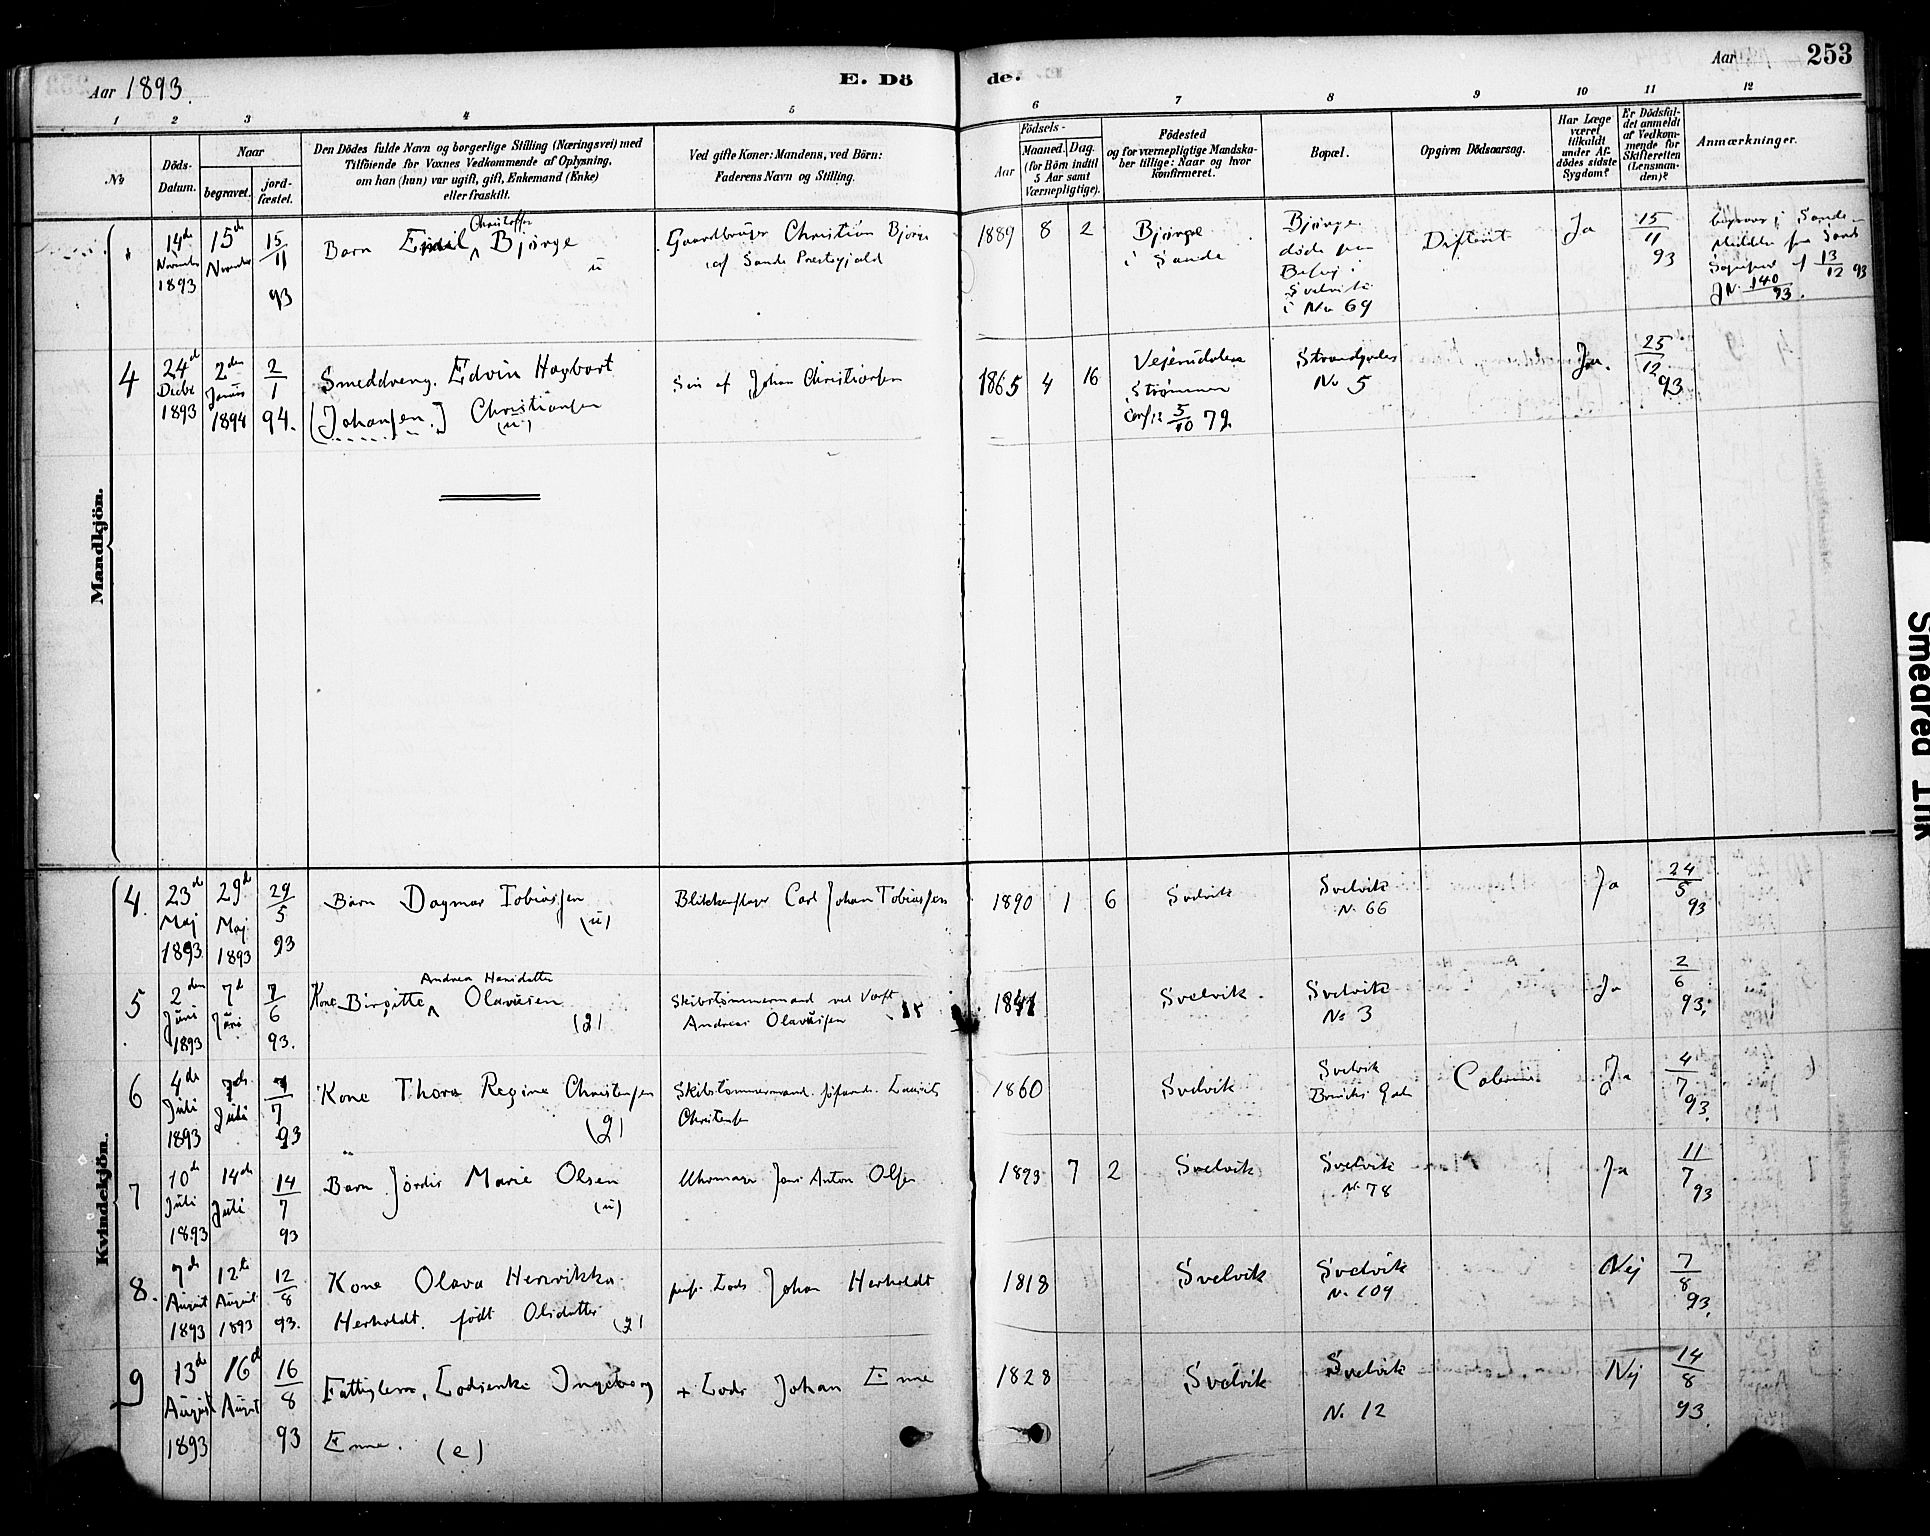 Aar 1893.
E. Dö
de.
Aar
253
1 2 3 4 5 6 7 8 9 10 11 12
No
Döds-
Datum.
Naar
begravet.
jord-
fæstet.
Den Dödes fulde Navn og borgerlige Stilling (Næringsvei) med
Tilföiende for Voxnes Vedkommende af Oplysning,
om han (hun) var ugift, gift, Enkemand (Enke)
eller fraskilt.
Ved gifte Koner: Mandens, ved Börn:
Faderens Navn og Stilling.
Födsels-
Aar
Maaned.
Dag.
(for Börn indtil
5 Aar samt
Værnepligtige).
Födested
og for værnepligtige Mandska-
ber tillige: Naar og hvor
konfirmeret.
Bopæl.
Opgiven Dödsaarsag.
Har Læge
været
tilkaldt
under Af-
dödes sidste
Sygdom?
Er Dödsfal-
det anmeldt
af Vedkom-
mende for
Skifteretten
(Lensman-
den)?
Anmærkninger.
Mandkjön.
14de November 1893
15de November
15/11 93
Christoffer
Barn Emil Bjørge
u
Gaardbruger Christian Bjørge
af Sande Prestegjeld
1889 8 2
Bjørge
i Sande
Bjørge
døde paa
Besøg i
Svelvik
i No 69
Difterit
Ja
15/11 93
13/12 93
JN. 140/93.
4
24de Decbr 1893
2den Januar 1894
2/1 94.
Smeddreng. Edvin Hagbart
[Johansen.] Christiansen
(u)
Søn af Johan Christiansen
1865 4 16
Strømmen
Conf. 5/10 79.
No 5
Ja.
25/12 93
Kvindekjön.
4.
23de Maj 1893
29de Maj 1893
29/5 93
Barn Dagmar Tobiassen
(u)
Blikkenslager Carl Johan Tobiassen
1890 1 6
Svelvik
Svelvik
N. 66
Ja
24/5 93
5
2den Juni 1893
7de Juni
7/6 93.
Andrea Hansdatter
Kone Birgitte Olavesen
(g)
Skibstømmermand ved Værft
Andreas Olavesen
1841
Svelvik.
Svelvik
No 3
Ja
2/6 93.
6
4de Juli 1893
7de Juli
7/7 93
Kone Thora Regine Christensen
(g)
Skibstømmermand. søfarende Laurits
Christensen
1860
Svelvik
Svelvik
Ja
4/7 93.
7
10de Juli 1893
14de Juli
14/7 93
Barn Jordis Marie Olsen
(u)
Uhrmager Jens Anton Olsen
1893 7 2
Svelvik
Svelvik
N. 78
Ja
11/7 93
8.
7de August 1893
12te August 1893
12/8 93.
Kone Olava Henrikka
Herholdt. født Olsdatter
(g)
pens. Lods Johan Herholdt
1818
Svelvik
Svelvik
N. 109
Nej
7/8 93.
9
13de August 1893
16de August
16/8 93
Fattiglem, Lodsenke Ingeborg
Enne. (e)
+ Lods Johan Enne
1828
Svelvik
Svelvik
N. 12
Nej
14/8 93.
Smeared Ink